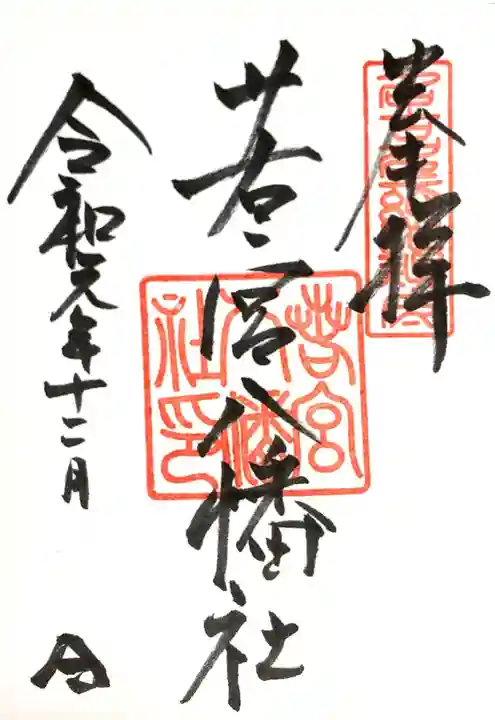 奉拝
若宮八幡社
令和元年十二月
若宮八幡社印